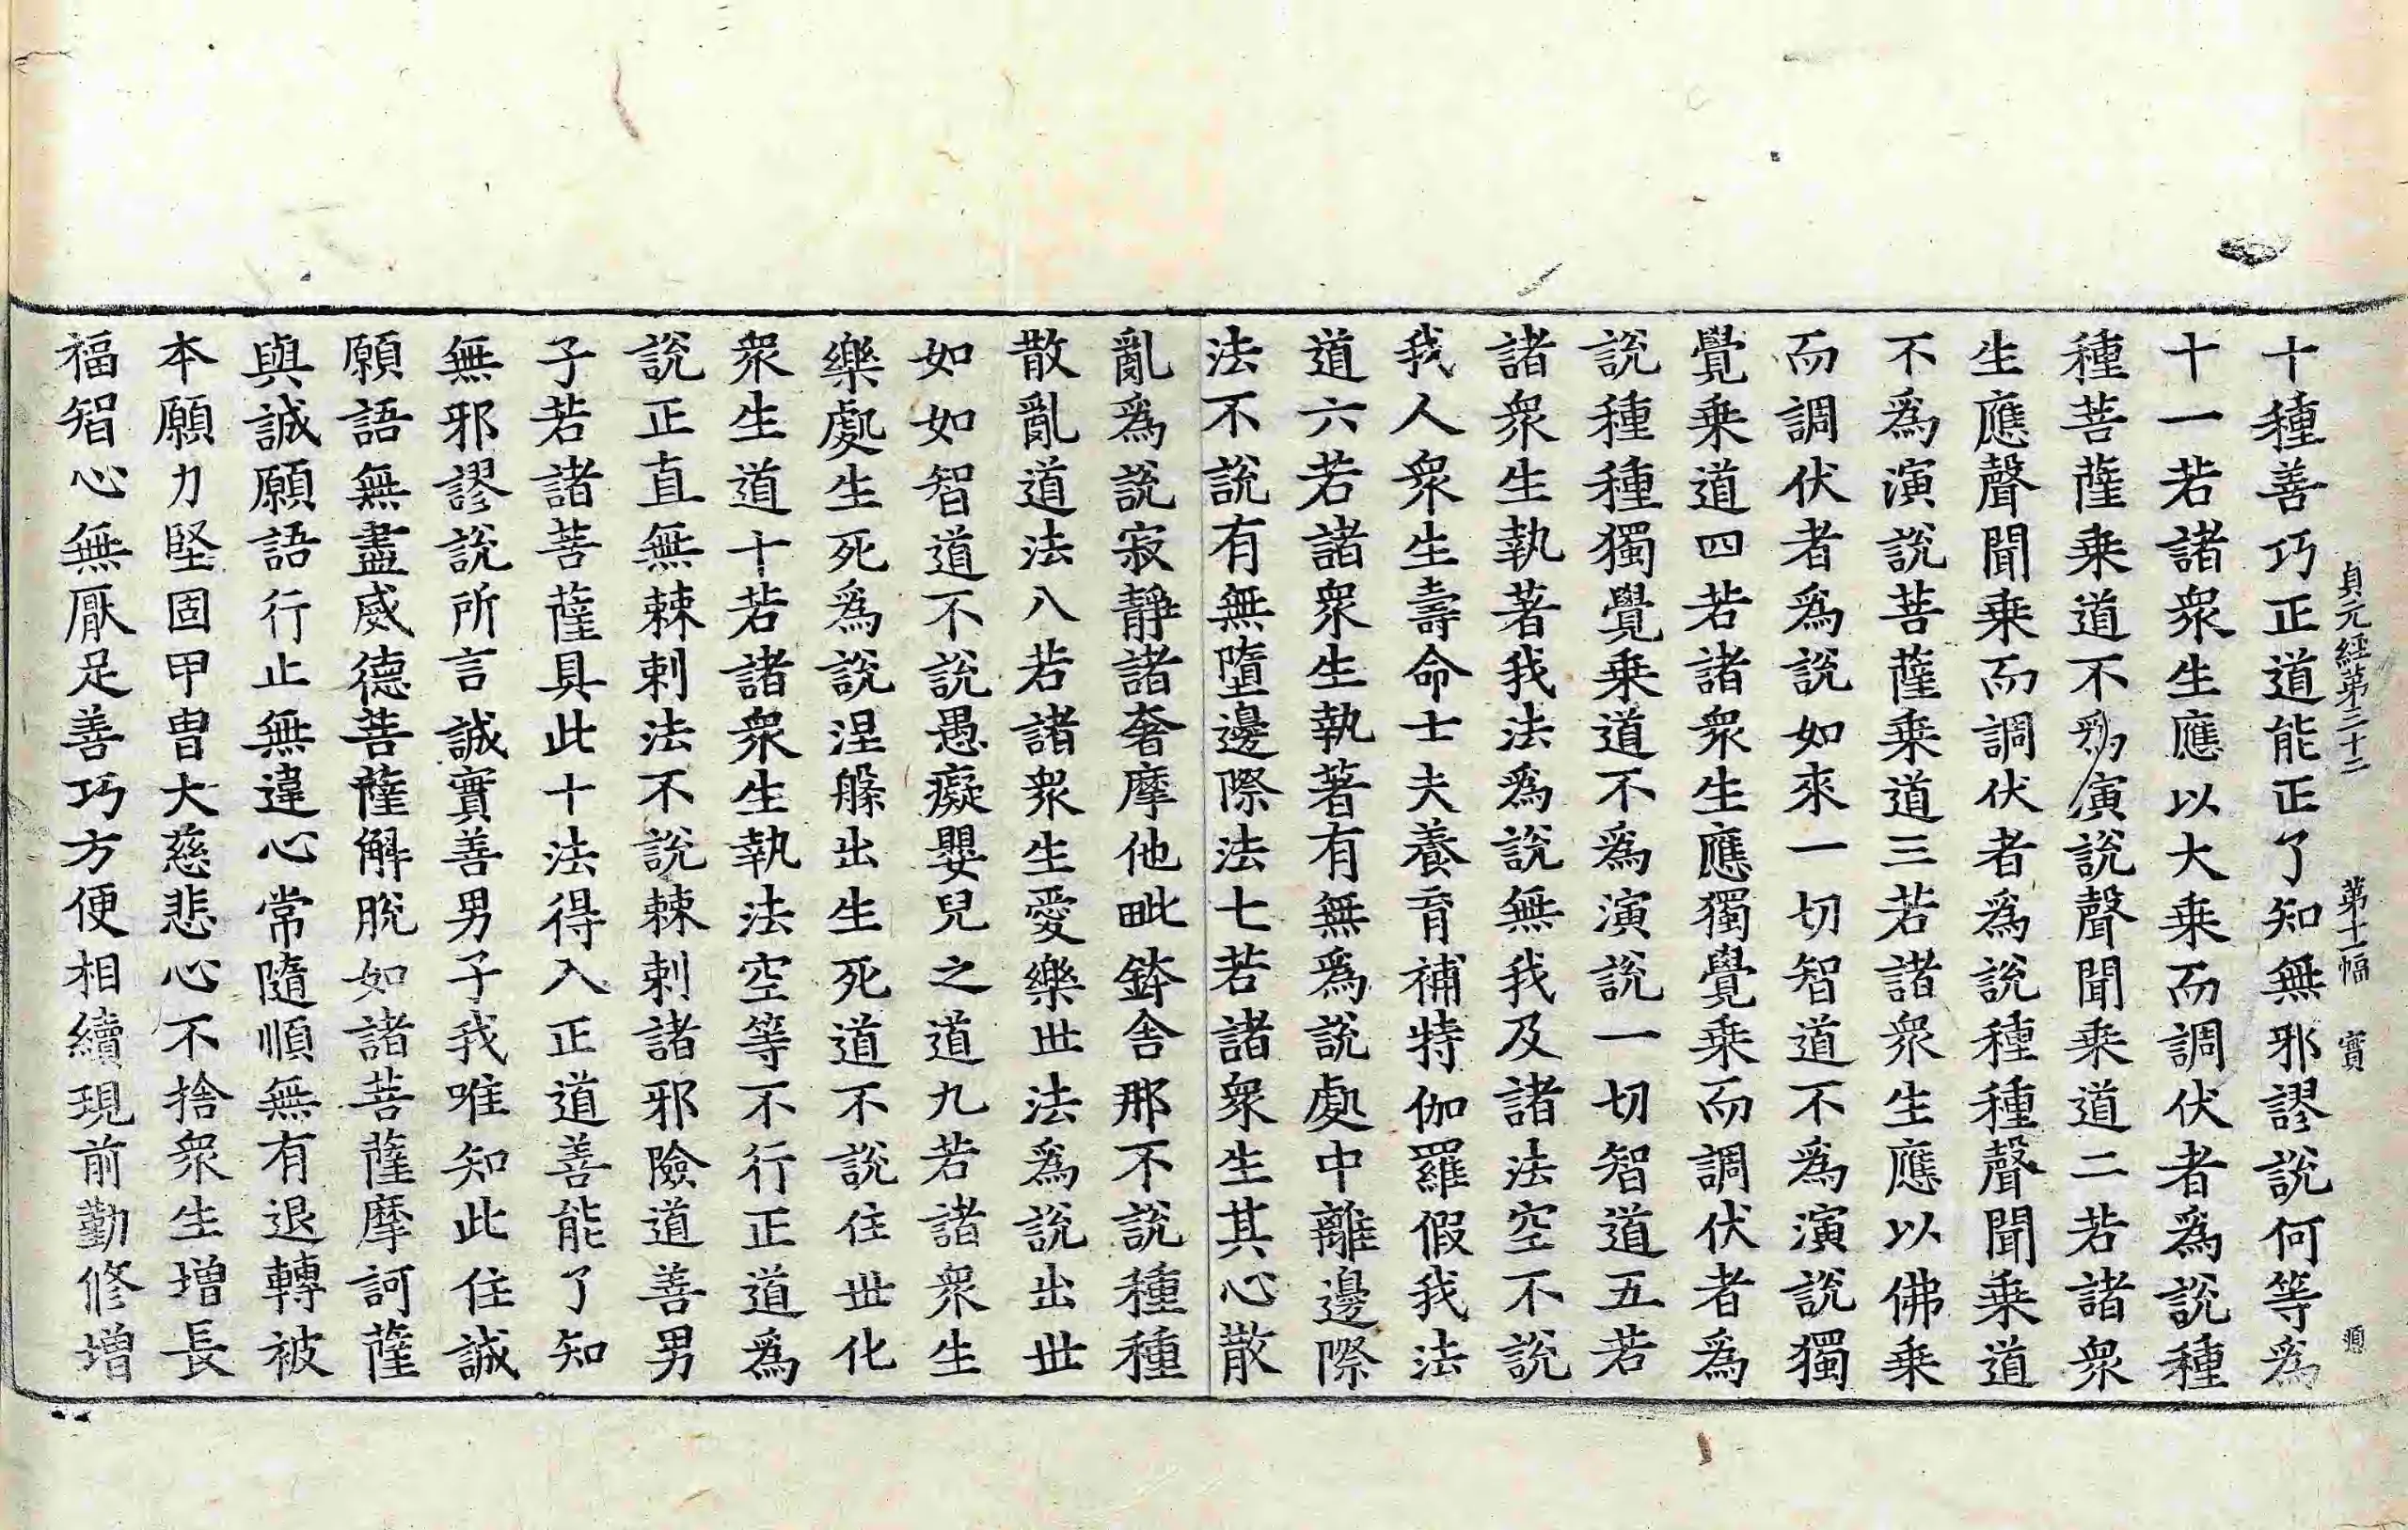 貞元經第三十二 第十一幅 實 順
十種善巧正道能正了知無邪謬說何等爲
十一若諸衆生應以大乗而調伏者爲說種
種菩薩乗道不爲演說聲聞乗道二若諸衆
生應聲聞乗而調伏者爲說種種聲聞乗道
不爲演說菩薩乗道三若諸衆生應以佛乗
而調伏者爲說如來一切智道不爲演說獨
覺乗道四若諸衆生應獨覺乗而調伏者爲
說種種獨覺乗道不爲演說一切智道五若
諸衆生執著我法爲說無我及諸法空不說
我人衆生壽命士夫養育補特伽羅假我法
道六若諸衆生執著有無爲說處中離邊際
法不說有無墮邊際法七若諸衆生其心散
亂爲說寂靜諸奢摩他毗鉢舍那不說種種
散亂道法八若諸衆生愛樂世法爲說出世
如如智道不說愚癡嬰兒之道九若諸衆生
樂處生死爲說涅槃出生死道不說住世化
衆生道十若諸衆生執法空等不行正道爲
說正直無棘刺法不說棘刺諸邪險道善男
子若諸菩薩具此十法得入正道善能了知
無邪謬說所言誠實善男子我唯知此住誠
願語無盡威德菩薩解脫如諸菩薩摩訶薩
與誠願語行止無違心常隨順無有退轉被
本願力堅固甲冑大慈悲心不捨衆生增長
福智心無厭足善巧方便相續現前勤修增